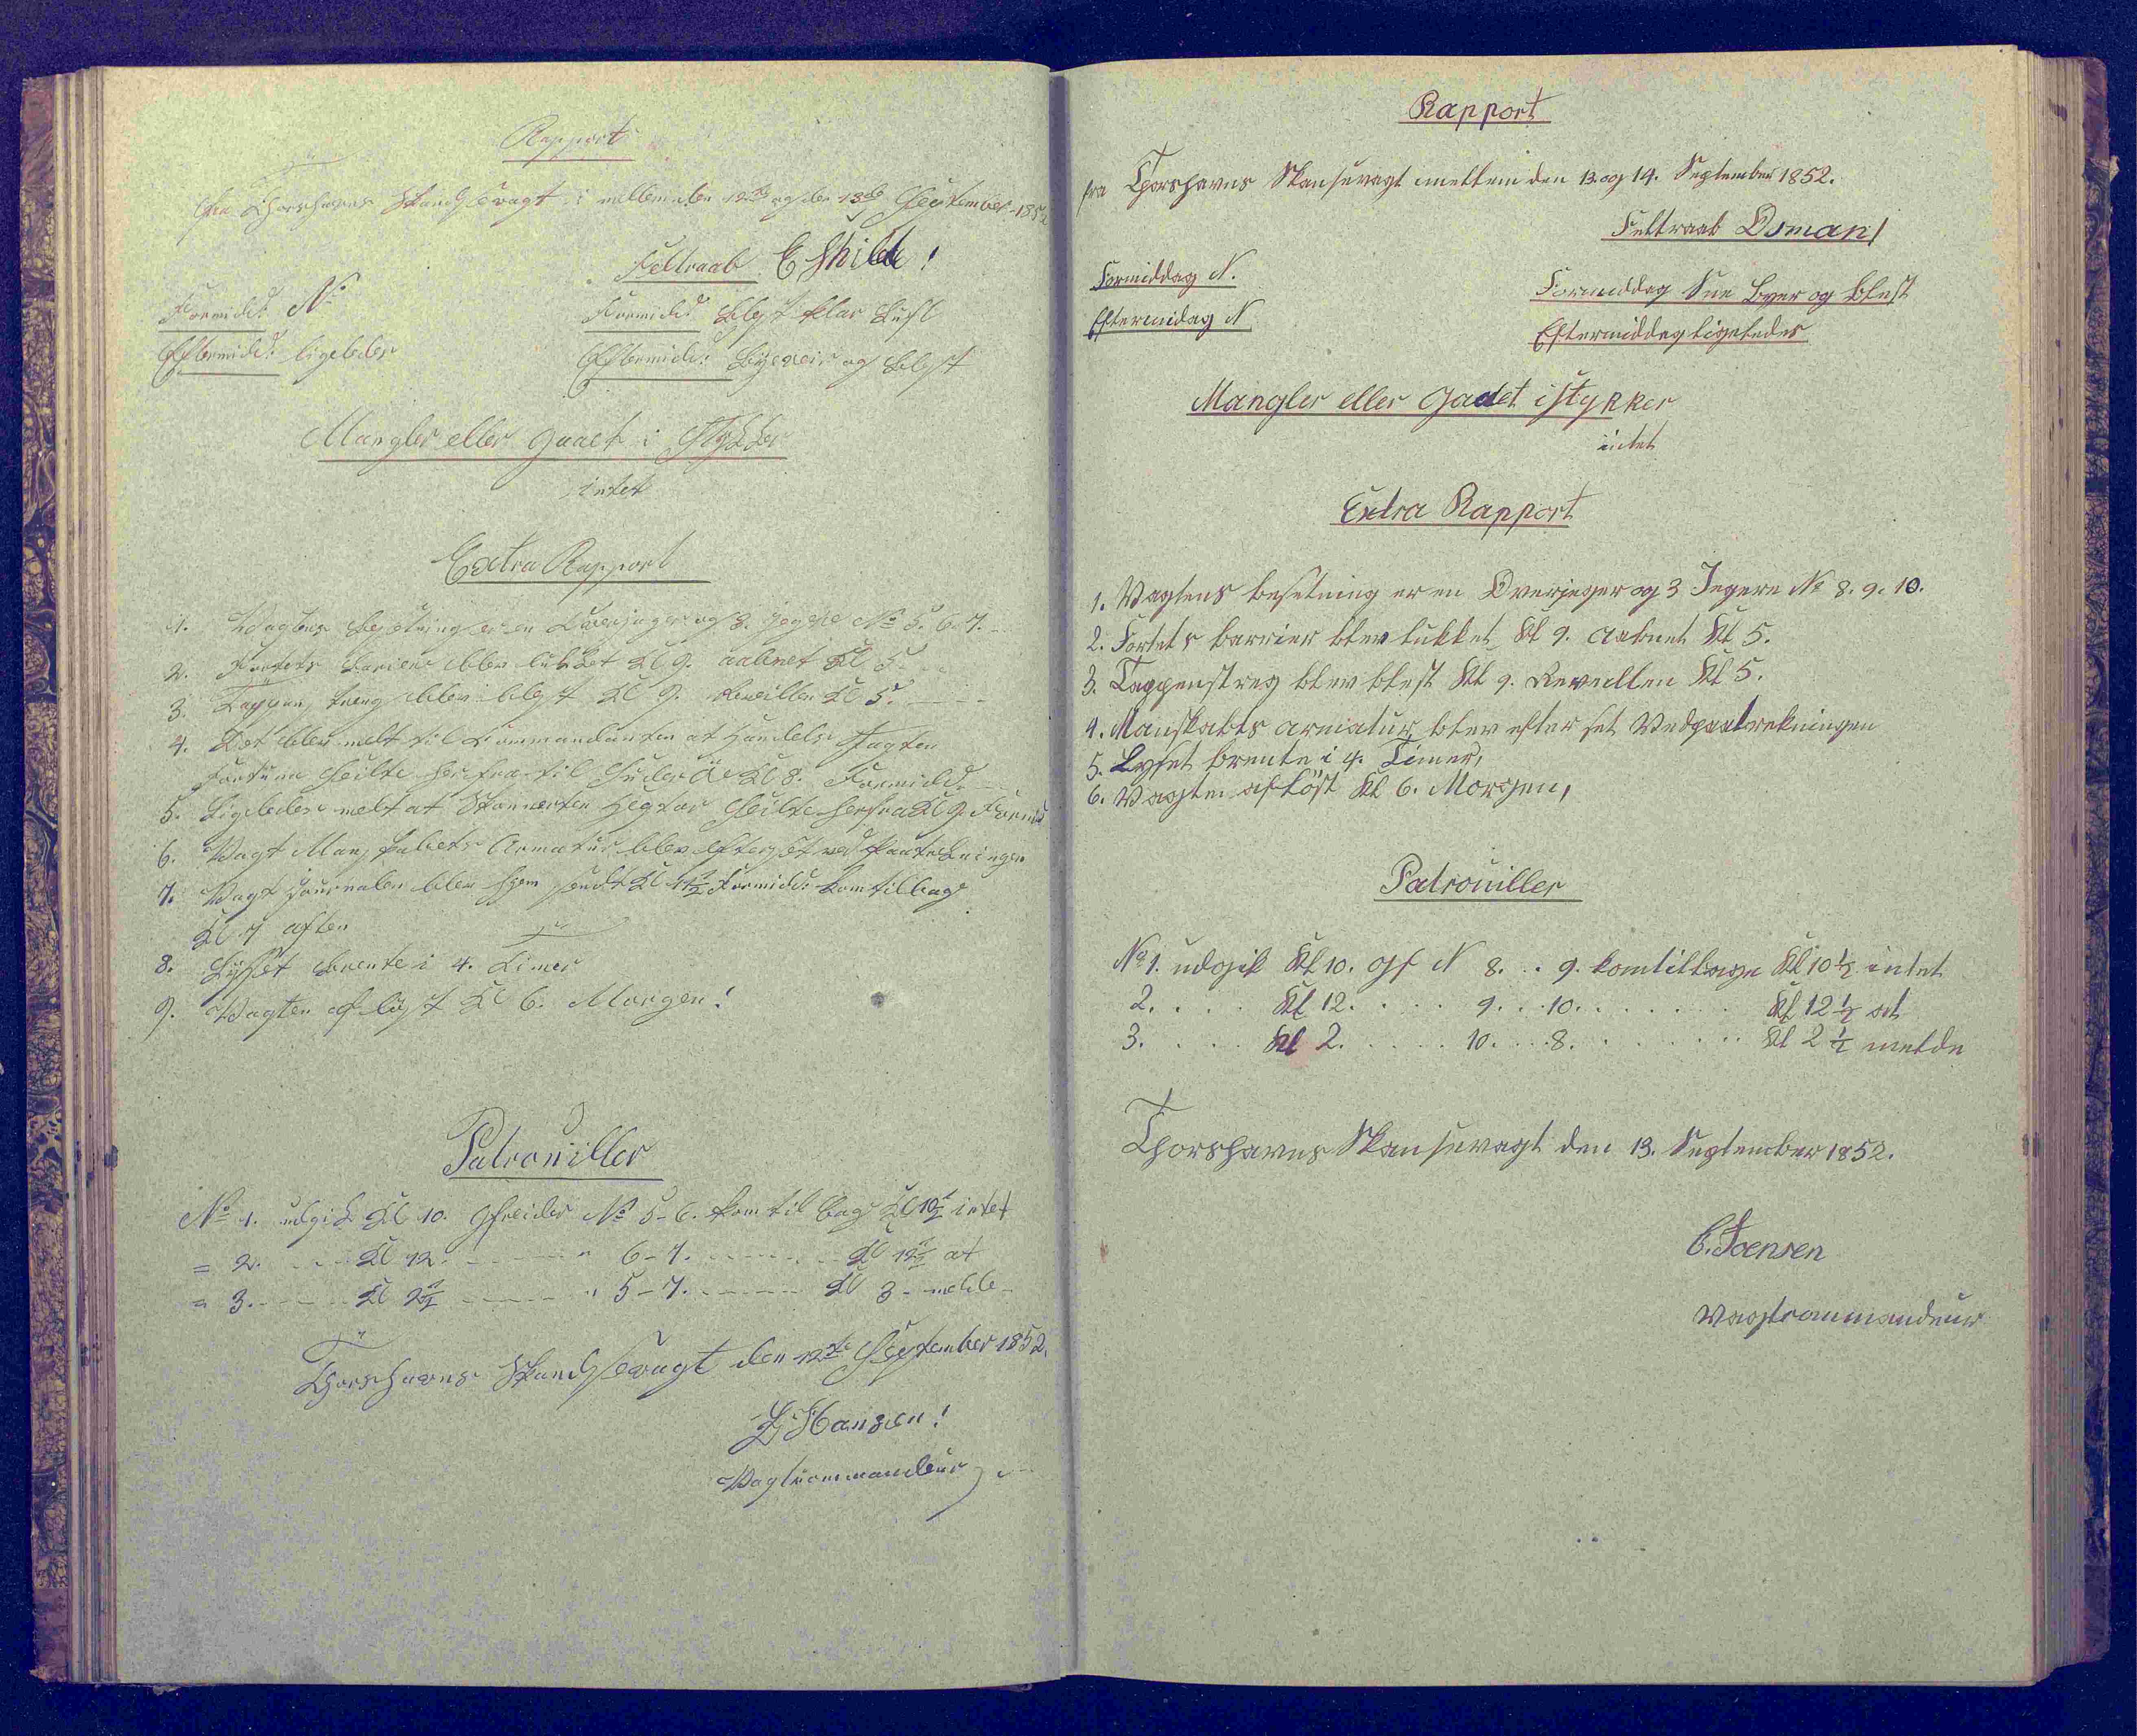 Rapport
fra Thorshavns Skandsevagt i mellem den 12te og den 13de September 1852
Feltraab Eskild!
Formidd: N:
Formidd: Blest klar Luft
Eftermidd: ligeledes
Eftermidd: Byeveir og Blest
Mangler eller gaaet i Stykker
intet
Extra Rapport
1. Vagtens Besetning er en Overjæger og 3. jegere No 5. 6. 7.
2. Fortets Bariere blev lukket Kl 9. aabnet Kl 5.
3. Tappenstreg blev blest Kl 9. Reveillen Kl 5.
4. Det blev melt til Commandanten at Handels Jagten
Fortuna Seilte herfra til Suderöe Kl 8. Formidd.
5. Ligeledes melt at Skonnerten Hegtor Seilte herfra Kl 9. Formid
6. Vagt Manskabets Armatur blev efterset ved Paatrekningen
7. Vagt Journalen blev hjem sendt Kl 11½ Formidd: kom tilbage
Kl 7 aften
8. Lyset brente i 4. Timer
9. Vagten aflöst Kl 6. Morgen!
Patrouiller
No 1. udgik Kl 10. Gfreider No 5-6. kom tilbage Kl 10½ intet
= 2. Kl 12. " 6-7. Kl 12½ at
= 3. Kl 2½ " 5-7. Kl 3 - melde
Thorshavns Skandsevagt den 12te September 1852.
L Hansen!
Vagtcommandeur
Rapport
fra Thorshavns Skansevagt mellem den 13. og 14. September 1852.
Feltraab Osman!
Formiddag N.
Formiddag Sne Byer og blest
Eftermidag N
Eftermiddag ligeledes
Mangler eller Gaaet istykker
intet
Extra Rapport
1. Vagtens besetning er en Overjeger og 3 Jegere No 8. 9. 10.
2. Fortets barrier blev lukket Kl 9. aabnet Kl 5.
3. Tappenstreg blev blest Kl 9. Revellien Kl 5.
4. Manskabts armatur blev efter set Ved paatrekningen
5. Lyset brente i 4. Timer,
6. Vagten aflöst Kl 6. Morgen,
Patrouiller
No 1. udgik Kl 10. Gf N 8. . 9. kom tilbage Kl 10½ intet
2. Kl 12. 9. . 10. Kl 12½ at
3. Kl 2. 10. . 8. Kl 2½ melde
Thorshavns Skansevagt den 13. September 1852.
C. Joensen
Vagtcommandeur